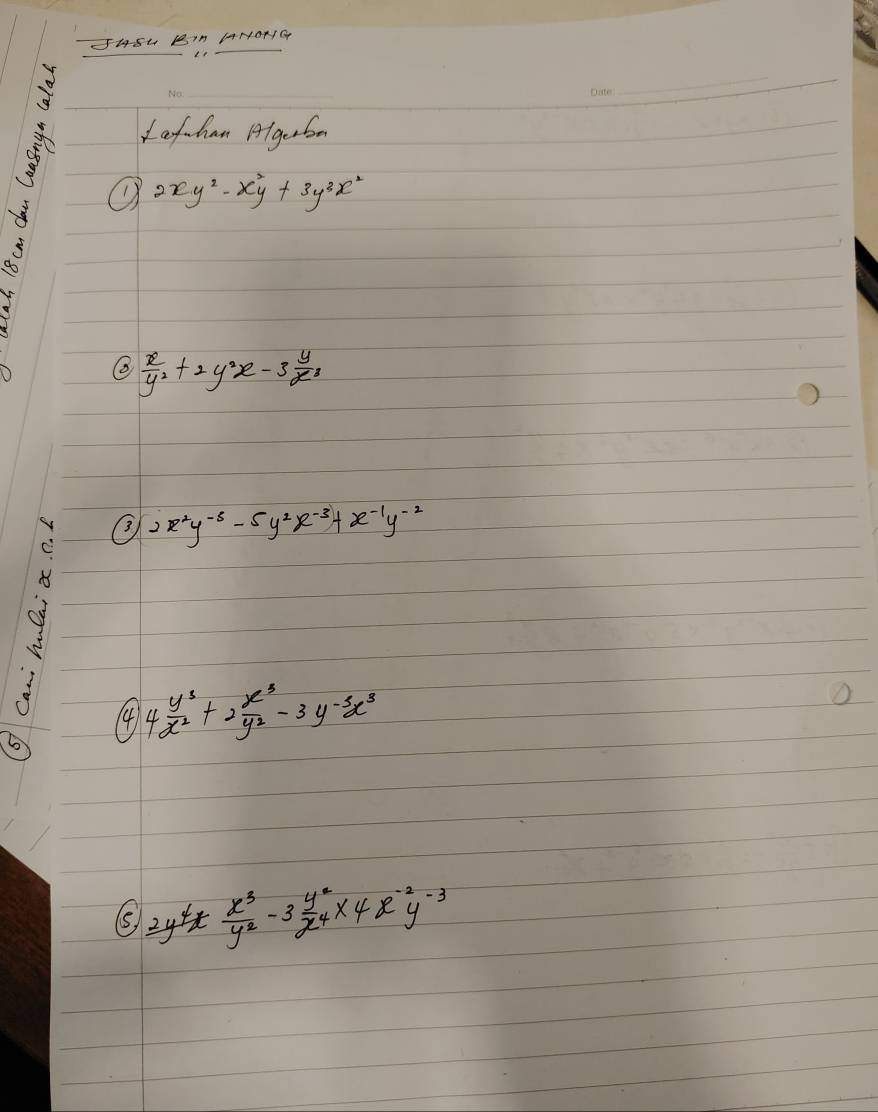 JASU BIN ANONG
No.
Date:
Latuhan Algerba
① 2xy² - x²y + 3y³x²
② x/y² + 2y²x - 3 y/x³
③ 2x²y⁻³ - 5y²x⁻³ + x⁻¹y⁻²
④ 4 y³/x² + 2 x³/y² - 3y⁻³x³
⑤ x³/y² - 3 y²/x⁴ × 4x⁻²y⁻³
alah 18 cm dan luasnya ialah
⑤ Cari nilai x